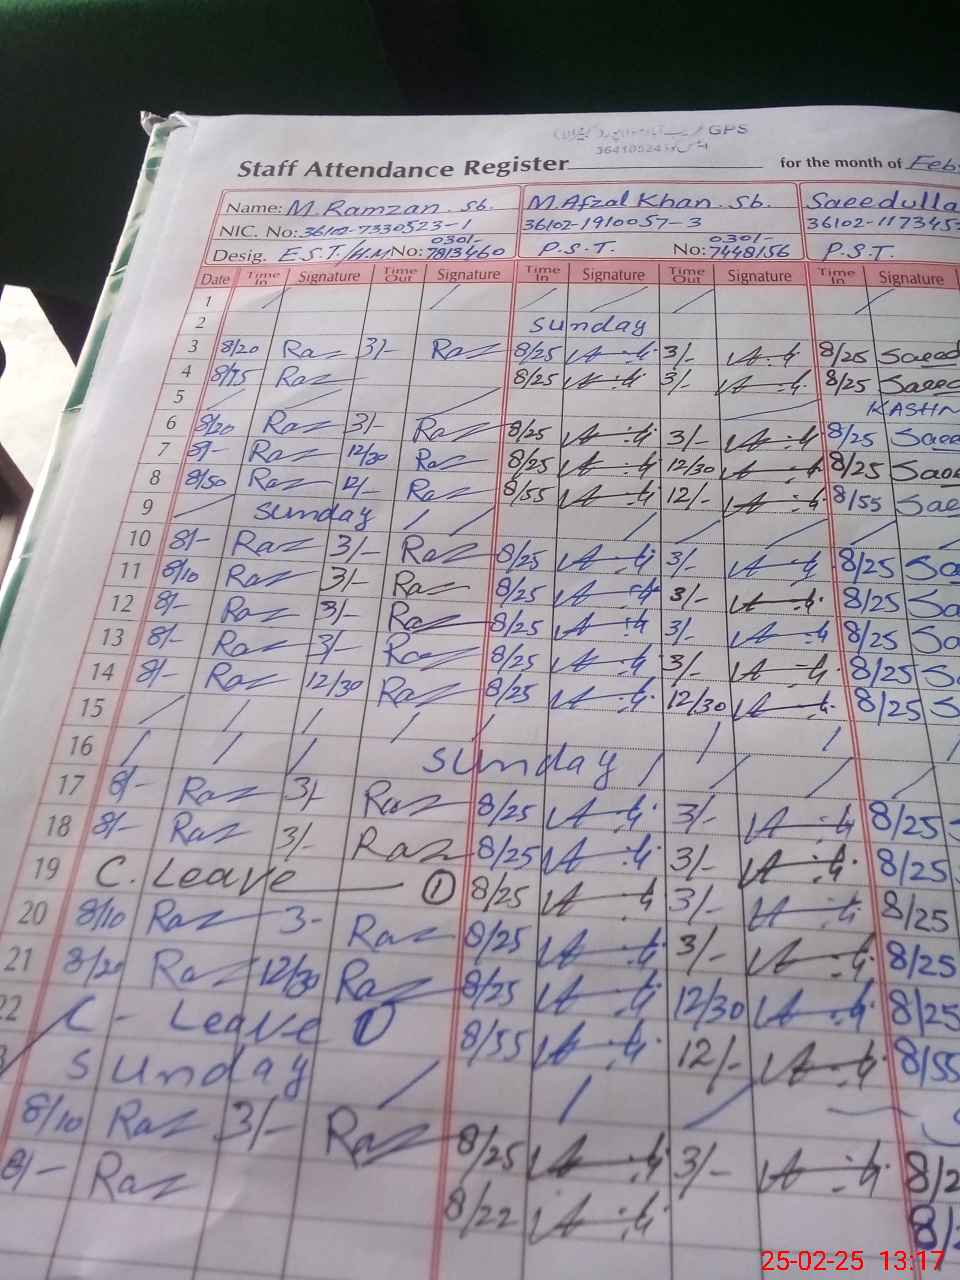 GPS
36410524
Staff Attendance Register for the month of Feb
Name: M. Ramzan. Sb. M. Afzal Khan. Sb. Saeedulla
NIC. No: 36102-7330523-1 36102-1910057-3 36102-1173457
Desig. E.S.T/H.M No: 0301-7813460 P.S.T. No: 0301-7448156 P.S.T.
Date Time In Signature Time Out Signature Time In Signature Time Out Signature Time In Signature
1
2 Sunday
3 8/20 Raz 3/- Raz 8/25 3/- 8/25 Saeed
4 8/15 Raz 8/25 3/- 8/25 Saeed
5 KASHM
6 8/20 Raz 3/- Raz 8/25 3/- 8/25 Sae
7 8/- Raz 12/30 Raz 8/25 12/30 8/25 Sae
8 8/50 Raz 12/- Raz 8/55 12/- 8/55 Sae
9 Sunday
10 8/- Raz 3/- Raz 8/25 3/- 8/25 Sa
11 8/10 Raz 3/- Raz 8/25 3/- 8/25 Sa
12 8/- Raz 3/- Raz 8/25 3/- 8/25 Sa
13 8/- Raz 3/- Raz 8/25 3/- 8/25 S
14 8/- Raz 12/30 Raz 8/25 12/30 8/25 S
15
16 Sunday
17 8/- Raz 3/- Raz 8/25 3/- 8/25
18 8/- Raz 3/- Raz 8/25 3/- 8/25
19 C. Leave 1 8/25 3/- 8/25
20 8/10 Raz 3- Raz 8/25 3/- 8/25
21 8/20 Raz 12/30 Raz 8/25 12/30 8/25
22 C - Leave 1 8/55 12/- 8/55
3 Sunday
8/10 Raz 3/- Raz 8/25 3/- 8/2
8/- Raz 8/22 8/2
25-02-25 13:17